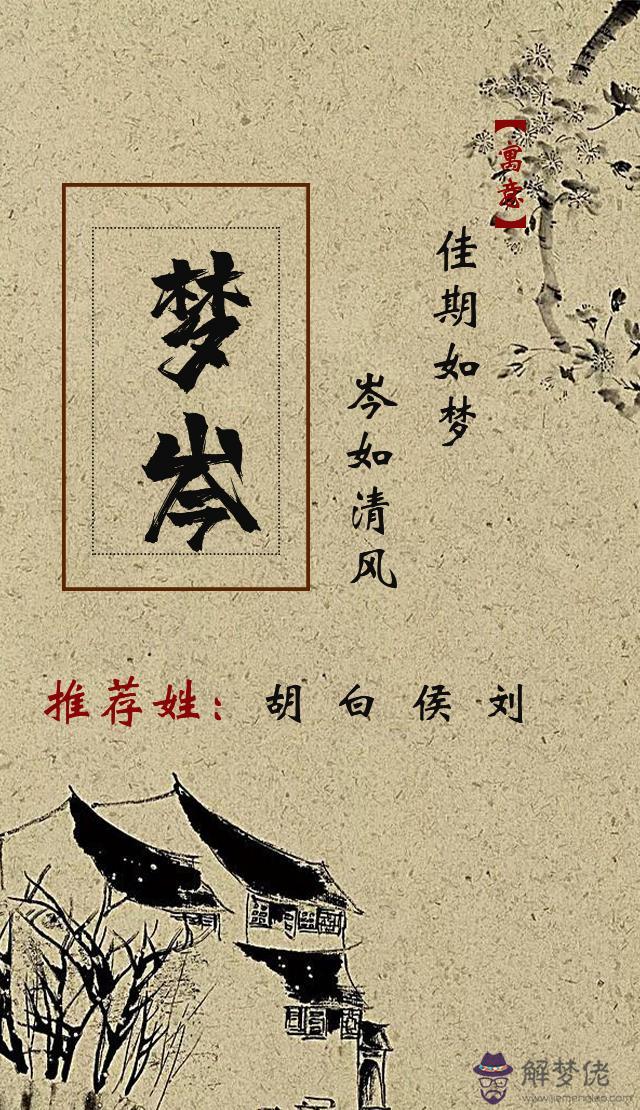 梦岑
【寓意】
佳期如梦
岑如清风
推荐姓：胡 白 侯 刘
解梦佬
www.jiemenglao.com